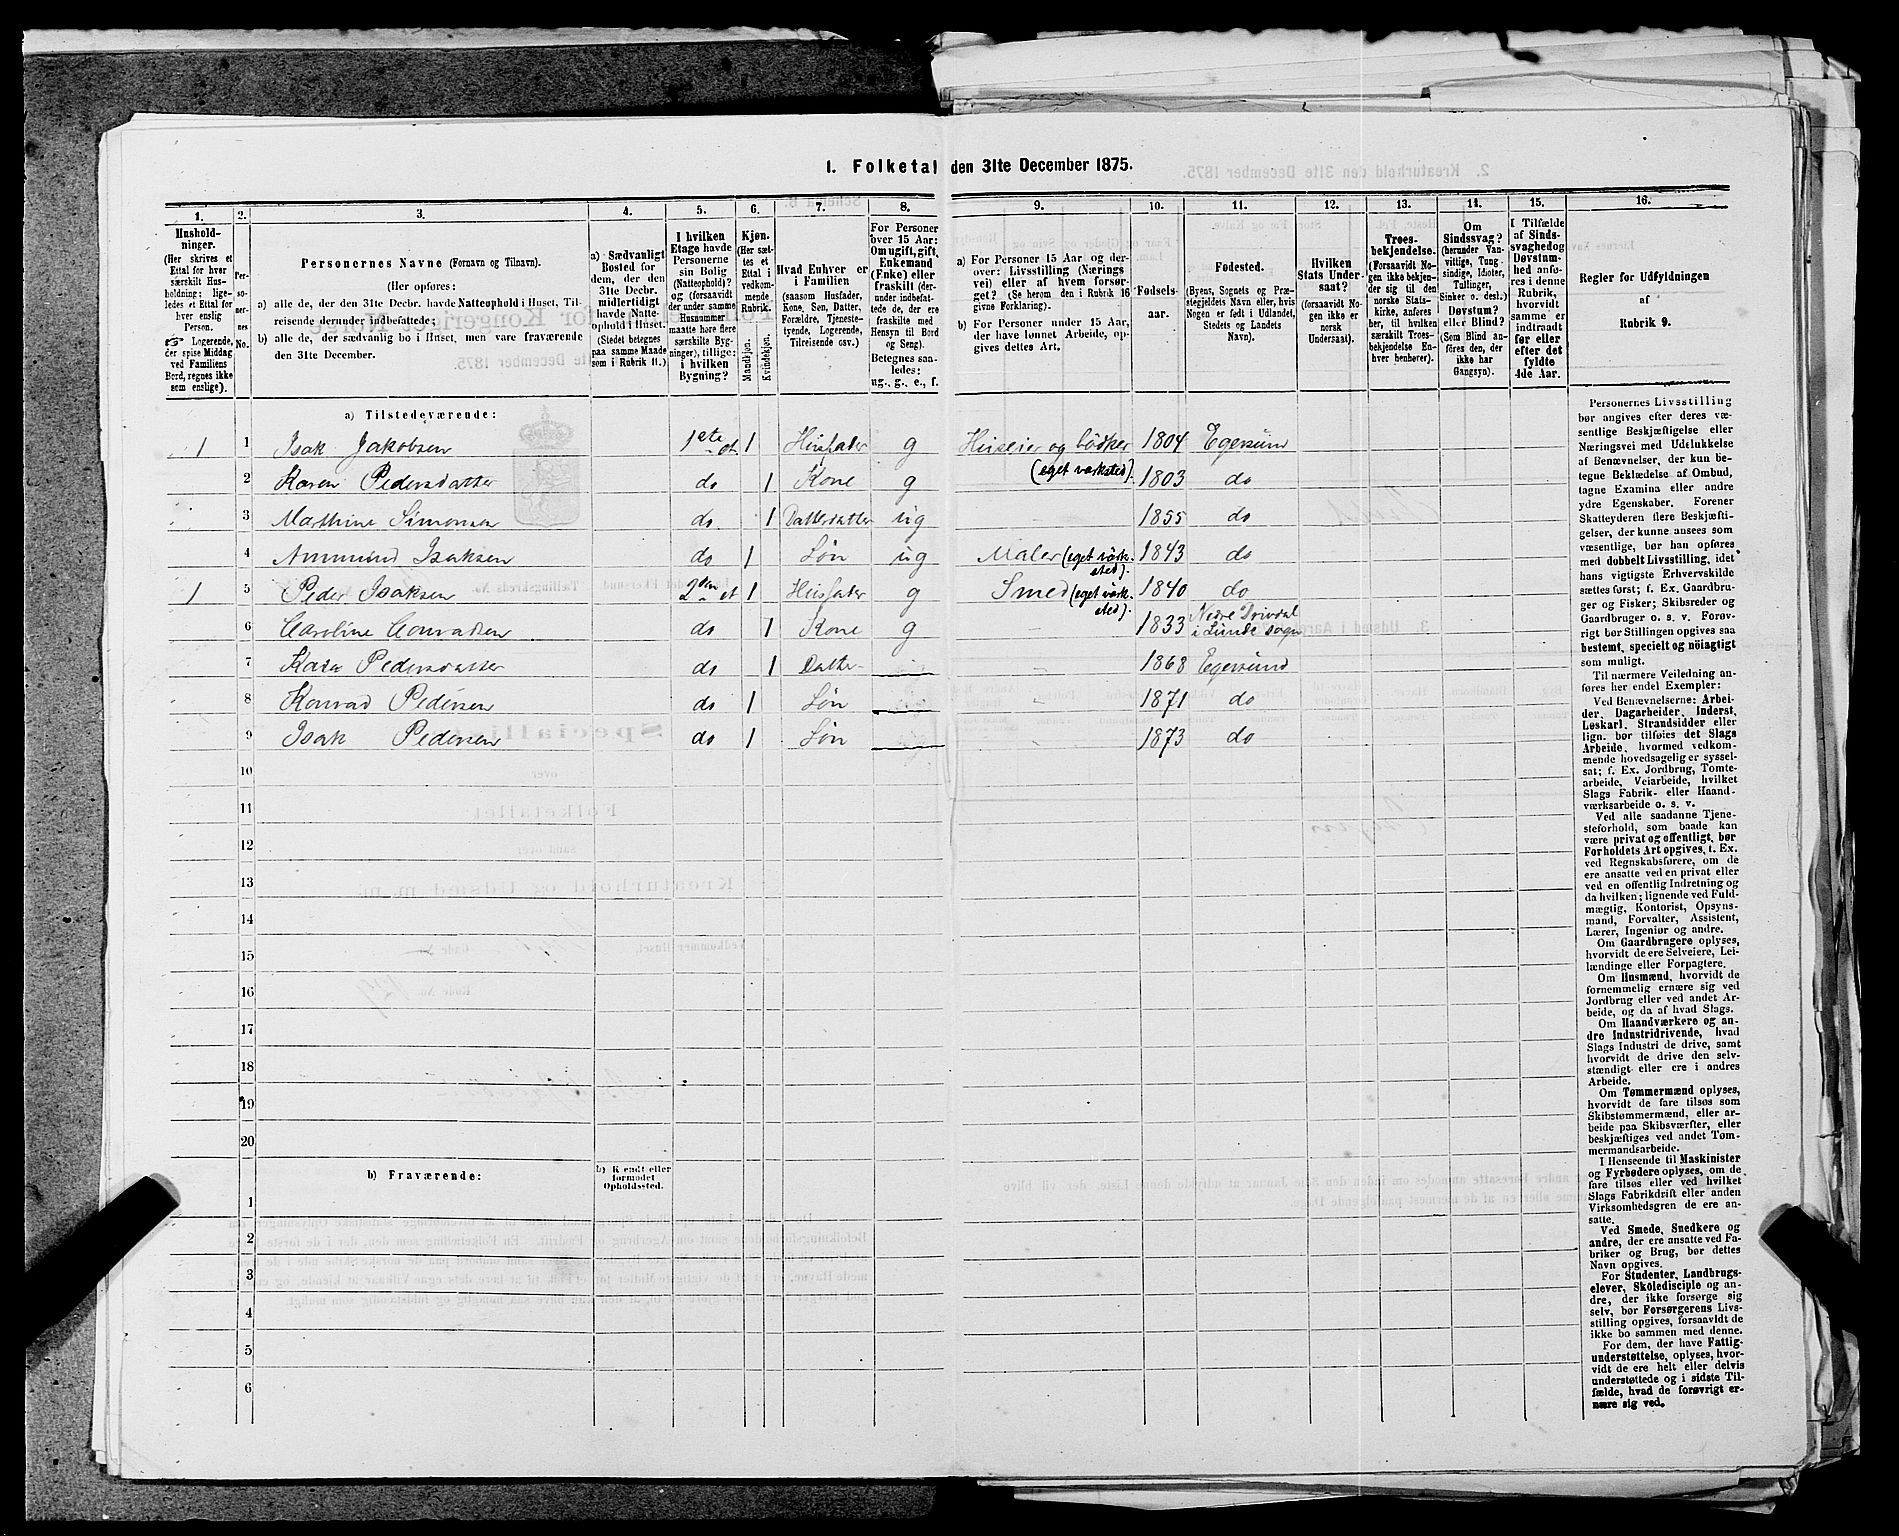 1. Folketal den 31te December 1875.
1. 2. 3. 4. 5. 6. 7. 8. 9. 10. 11. 12. 13. 14. 15. 16.
Hushold-
ninger.
(Her skrives et
Ettal for hver
særskilt Hus-
holdning; lige-
ledes et Ettal for
hver enslig
Person.
☞ Logerende,
der spise Middag
ved Familiens
Bord, regnes ikke
som enslige).
Per-
so-
ner-
nes
No.
Personernes Navne (Fornavn og Tilnavn).
(Her opføres:
a) alle de, der den 31te Decbr. havde Natteophold i Huset, Til-
reisende derunder indbefattede;
b) alle de, der sædvanlig bo i Huset, men vare fraværende
den 31te December.
a) Sædvanligt
Bosted for
dem, der den
31te Decbr.
midlertidigt
havde Natte-
ophold i Huset.
(Stedet betegnes
paa samme Maade
som i Rubrik 11.)
I hvilken
Etage havde
Personerne
sin Bolig
(Natteophold)?
og (forsaavidt
der under samme
Husnummer
maatte høre flere
særskilte Byg-
ninger), tillige:
i hvilken
Bygning?
Kjøn.
(Her sæt-
tes et
Ettal i
vedkom-
mende
Rubrik.
Mandkjøn.
Kvindekjøn.
Hvad Enhver er
i Familien
(saasom Husfader,
Kone, Søn, Datter,
Forældre, Tjeneste-
tyende, Logerende,
Tilreisende osv.)
For Personer
over 15 Aar:
Om ugift, gift,
Enkemand
(Enke) eller
fraskilt (der-
under indbefat-
tede de, der ere
fraskilte med
Hensyn til Bord
og Seng).
Betegnes saa-
ledes:
ug., g., e., f.
a) For Personer 15 Aar og der-
over: Livsstilling (Nærings
vei) eller af hvem forsør-
get? (Se herom den i Rubrik 16
givne Forklaring).
b) For Personer under 15 Aar,
der have lønnet Arbeide, op-
gives dettes Art.
Fødsels-
aar.
Fødested.
(Byens, Sognets og Præ-
stegjeldets Navn eller, hvis
Nogen er født i Udlandet,
Stedets og Landets
Navn).
Hvilken
Stats Under-
saat?
(forsaavidt No-
gen ikke er
norsk
Undersaat).
Troes-
bekjendelse.
(Forsaavidt No-
gen ikke bekjen-
der sig til den
norske Stats-
kirke, anføres
her, til hvilken
særskilt Troes-
bekjendelse En-
hver henhører).
Om
Sindssvag?
(herunder Van-
vittige, Tung-
sindige, Idioter,
Tullinger,
Sinker o. desl.)
Døvstum?
eller Blind?
(Som Blind an-
føres den, der
ikke har
Gangsyn).
I Tilfælde
af Sinds-
svaghed og
Døvstum-
hed anfø-
res i denne
Rubrik,
hvorvidt
samme er
indtraadt
før eller
efter det
fyldte
4de Aar.
Regler for Udfyldningen
af
Rubrik 9.
a) Tilstedeværende:
1 1 Isak Jakobsen 1ste et 1 Husfader g Huseier og bödker (eget værksted). 1804 Egersund
2 Karen Pedersdatter do 1 Kone g 1803 do
3 Marthine Simonsen do. 1 Datterdatter ug " 1855 do
4 Ammund Isaksen do 1 Søn ug Maler (eget værk-sted). 1843 do
1 5 Peder Isaksen 2den et 1 Husfader g Smed (eget værk-sted). 1840 do
6 Caroline Conradsen do 1 Kone g 1833 Nedre Drivdal i Lunde sogn
7 Kaia Pedersdatter do 1 Datter " 1868 Egersund
8 Konrad Pedersen do 1 Søn " 1871 do
9 Isak Pedersen do 1 Søn " 1873 do
10
11
12
13
14
15
16
17
18
19
20
b) Fraværende:
b) Kjendt eller
formodet
Opholdssted.
1
2
3
4
5
6
Personernes Livsstilling
bør angives efter deres væ-
sentlige Beskjæftigelse eller
Næringsvei med Udelukkelse
af Benævnelser, der kun be-
tegne Beklædelse af Ombud,
tagne Examina eller andre
ydre Egenskaber. Forener
Skatteyderen flere Beskjæfti-
gelser, der kunne ansees som
væsentlige, bør han opføres
med dobbelt Livsstilling, idet
hans vigtigste Erhvervskilde
sættes først; f. Ex. Gaardbru-
ger og Fisker; Skibsreder og
Gaardbruger o. s. v. Forøv-
rigt bør Stillingen opgives saa
bestemt, specielt og nöiagtigt
som muligt.
Til nærmere Veiledning an-
føres her endel Exempler:
Ved Benævnelserne: Arbei-
der, Dagarbeider, Inderst,
Løskarl, Strandsidder eller
lign. bør tilføies det Slags
Arbeide, hvormed vedkom-
mende hovedsagelig er syssel-
sat; f. Ex. Jordbrug, Tomte-
arbeide, Veiarbeide, hvilket
Slags Fabrik- eller Haand-
værksarbeide o. s. v.
Ved alle saadanne Tjene-
steforhold, som baade kan
være privat og offentligt, bør
Forholdets Art opgives, t. Ex.
ved Regnskabsførere, om de
ere ansatte ved en privat eller
ved en offentlig Indretning og
da hvilken; lignende ved Fuld-
mægtig, Kontorist, Opsyns-
mand, Forvalter, Assistent,
Lærer, Ingeniør og andre.
Om Gaardbrugere oplyses,
hvorvidt de ere Selveiere, Lei-
lændinge eller Forpagtere.
Om Husmænd, hvorvidt de
fornemmelig ernære sig ved
Jordbrug eller ved andet Ar-
beide, og da af hvad Slags.
Om Haandværkere og an-
dre Industridrivende, hvad
Slags Industri de drive, samt
hvorvidt de drive den selv-
stændigt eller ere i andres
Arbeide.
Om Tømmermænd oplyses,
hvorvidt de fare tilsøs som
Skibstømmermænd, eller ar-
beide paa Skibsværfter, eller
beskjæftiges ved andet Tøm-
mermandsarbeide.
I Henseende til Maskinister
og Fyrbødere oplyses, om de
fare tilsøs eller ved hvilket
Slags Fabrikdrift eller anden
Virksomhedsgren de ere an-
satte.
Ved Smede, Snedkere og
andre, der ere ansatte ved Fa-
briker og Brug, bør dettes
Navn opgives.
For Studenter, Landbrugs-
elever, Skoledisciple og an-
dre, der ikke forsørge sig
selv, bør Forsørgerens Livs-
stilling opgives, forsaavidt de
ikke bo sammen med denne.
For dem, der have Fattig-
understøttelse, oplyses, hvor-
vidt de ere helt eller delvis
understøttede og i sidste Til-
fælde, hvad de forøvrigt er-
nære sig ved.